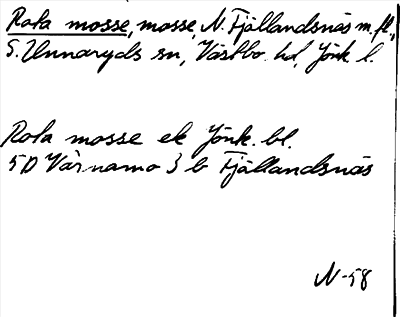 Rota mosse, mosse, N. Fjällandsnäs m. fl.,
S. Unnaryds sn, Västbo hd, Jönk. l.
Rota mosse ek Jönk. bl.
5D Värnamo 3 b Fjällandsnäs
N-58